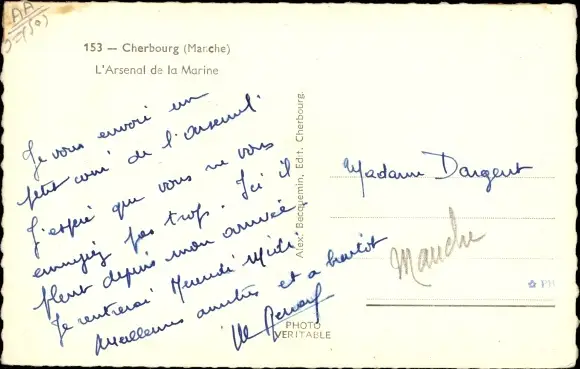 AA
153 — Cherbourg (Manche)
L'Arsenal de la Marine
Je vous envoie un
petit coin de l'arsenal.
J'espère que vous ne vous
ennuyiez pas trop. Ici il
pleut depuis mon arrivée
Je rentrerai Mercredi Midi
Meilleures amitiés et a bientôt
Alex. Becquemin, Edit. Cherbourg.
PHOTO
VERITABLE
Madame Dargent
Manche